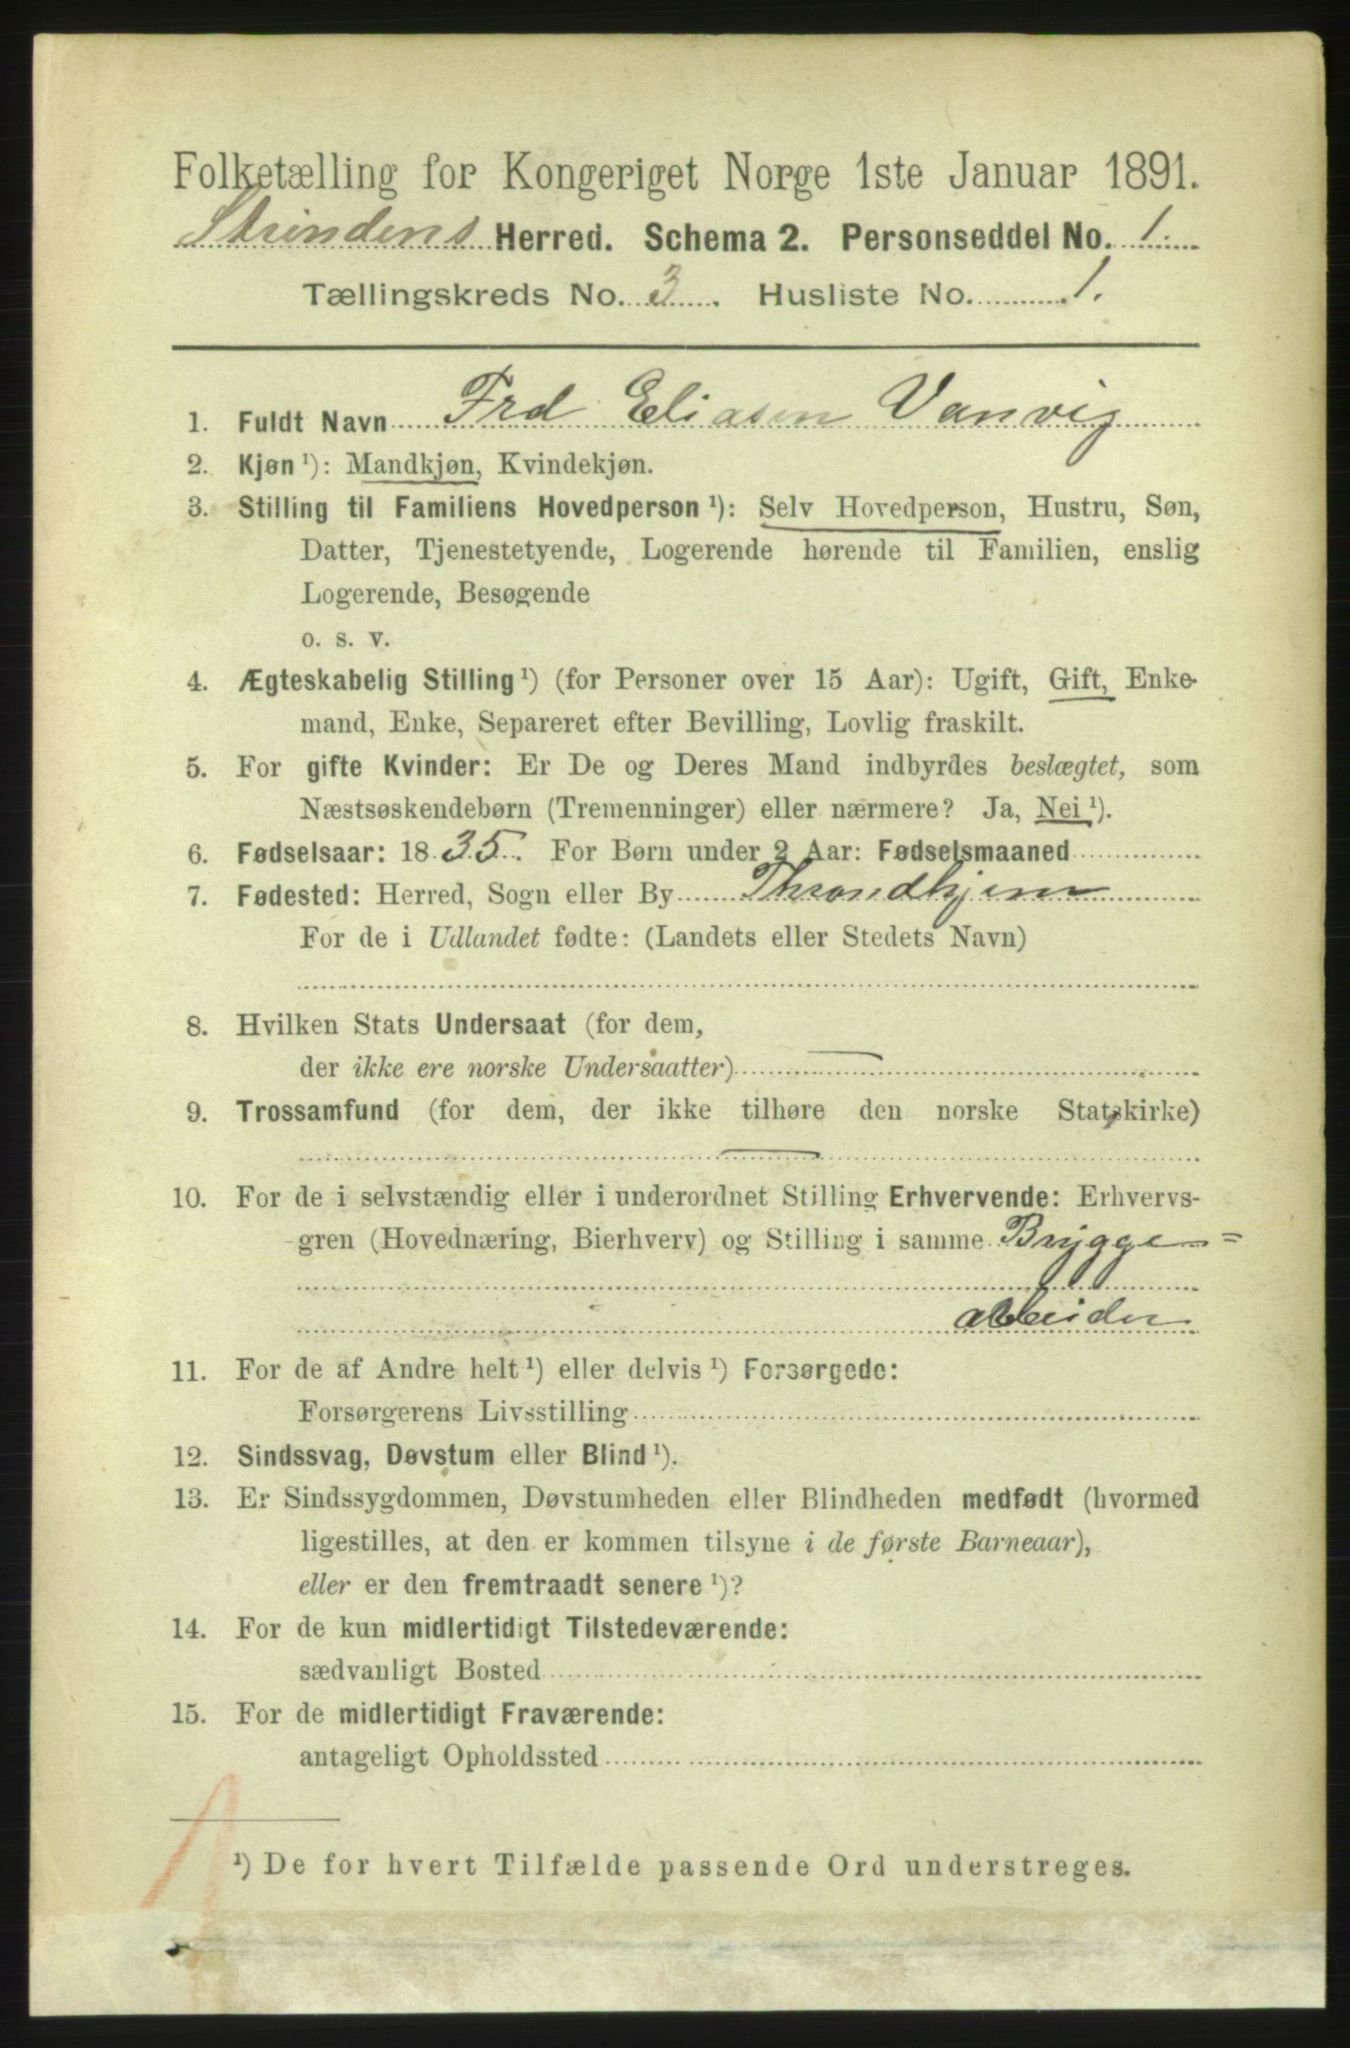 Folketælling for Kongeriget Norge 1ste Januar 1891.
Strindens Herred. Schema 2. Personseddel No. 1.
Tællingskreds No. 3. Husliste No. 1.
1. Fuldt Navn Frd Eliasen Vanvig
2. Kjøn ¹): Mandkjøn, Kvindekjøn.
3. Stilling til Familiens Hovedperson ¹): Selv Hovedperson, Hustru, Søn,
Datter, Tjenestetyende, Logerende hørende til Familien, enslig
Logerende, Besøgende
o. s. v.
4. Ægteskabelig Stilling ¹) (for Personer over 15 Aar): Ugift, Gift, Enke-
mand, Enke, Separeret efter Bevilling, Lovlig fraskilt.
5. For gifte Kvinder: Er De og Deres Mand indbyrdes beslægtet, som
Næstsøskendebørn (Tremenninger) eller nærmere? Ja, Nei ¹).
6. Fødselsaar: 1835. For Børn under 2 Aar: Fødselsmaaned
7. Fødested: Herred, Sogn eller By Throndhjem
For de i Udlandet fødte: (Landets eller Stedets Navn)
8. Hvilken Stats Undersaat (for dem,
der ikke ere norske Undersaatter)
9. Trossamfund (for dem, der ikke tilhøre den norske Statskirke)
10. For de i selvstændig eller i underordnet Stilling Erhvervende: Erhvervs-
gren (Hovednæring, Bierhverv) og Stilling i samme Brygge=
arbeider
11. For de af Andre helt ¹) eller delvis ¹) Forsørgede:
Forsørgerens Livsstilling
12. Sindssvag, Døvstum eller Blind ¹).
13. Er Sindssygdommen, Døvstumheden eller Blindheden medfødt (hvormed
ligestilles, at den er kommen tilsyne i de første Barneaar),
eller er den fremtraadt senere ¹)?
14. For de kun midlertidigt Tilstedeværende:
sædvanligt Bosted
15. For de midlertidigt Fraværende:
antageligt Opholdssted
¹) De for hvert Tilfælde passende Ord understreges.